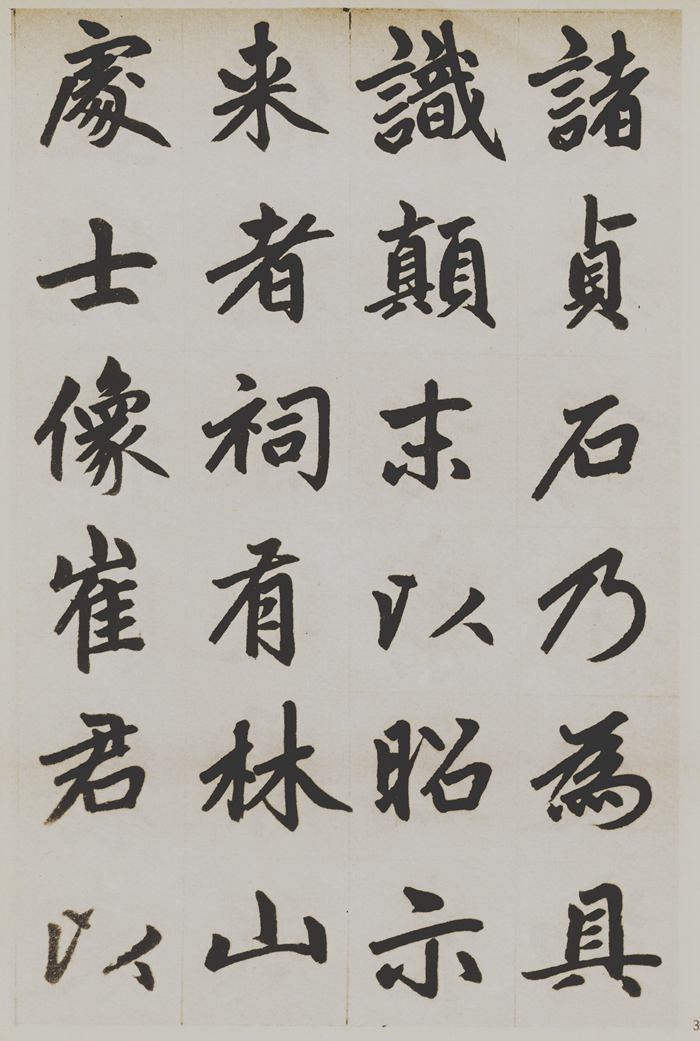 諸貞石乃為具
識顛末以昭示
来者祠有林山
處士像崔君以
3